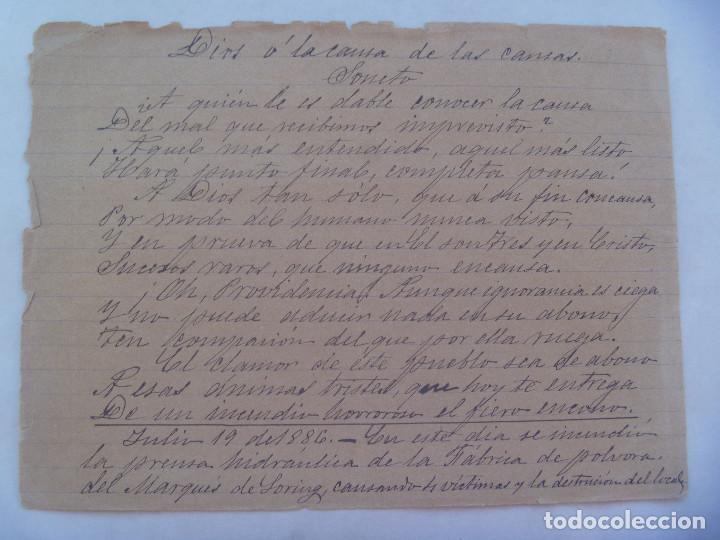 Dios ó la causa de las causas.
Soneto
¿A quién le es dable conocer la causa
Del mal que recibimos imprevisto?
¡Aquel mas entendido, aquel más listo
Hará punto final, completa pausa!
A Dios tan sólo, que á su fin concausa,
Por modo del humano nunca visto,
Y en prueva de que en El son Tres y en Cristo,
Sucesos raros, que ninguno encausa.
¡Oh, Providencia! Aunque ignorancia es ciega
Y no puede aducir nada en su abono,
Ten compasión del que por ella ruega.
El clamor de este pueblo sea de abono
A esas ánimas tristes, que hoy te entrega
De un incendio horroroso el fiero encono.
Julio 19 de 1886. — En este dia se incendió
la prensa hidráulica de la Fábrica de pólvora
del Marqués de Loring, causando víctimas y la destrución del local.
todocoleccion
todocoleccion.net